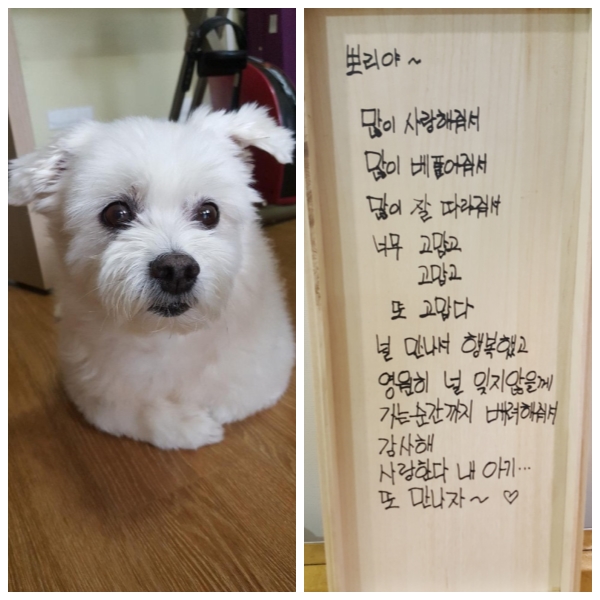 뽀리야 ~
많이 사랑해줘서
많이 베풀어줘서
많이 잘 따라줘서
너무 고맙고
고맙고
또 고맙다
널 만나서 행복했고
영원히 널 잊지않을께
가는순간까지 배려해줘서
감사해
사랑한다 내 아기...
또 만나자 ~ ♡